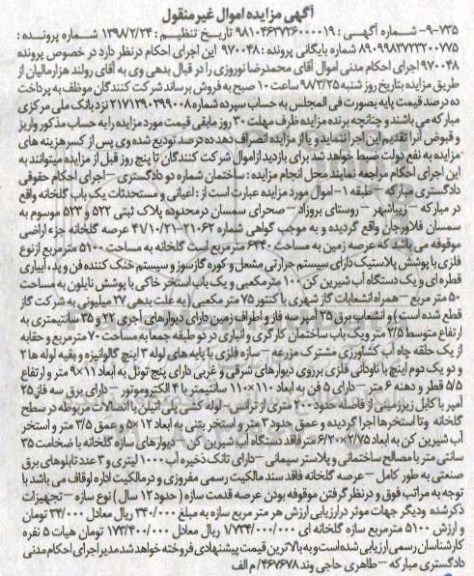 آگهی مزایده اموال غیر منقول
۹-۷۳۵- شماره آگهی: ۹۸۱۰۴۶۳۷۲۶۰۰۰۰۱۹ تاریخ تنظیم: ۱۳۹۸/۲/۲۴ شماره پرونده:
۸۹۰۹۹۸۳۷۲۳۲۰۰۷۷۵ شماره بایگانی پرونده: ۹۷۰۰۴۸ این اجرای احکام درنظر دارد در خصوص پرونده
۹۷۰۰۴۸ اجرای احکام مدنی اموال آقای محمدرضا نوروزی را در قبال بدهی وی به آقای روتند هزارمالیان از
طریق مزایده بتاریخ روز شنبه ۹۸/۳/۲۵ ساعت ۱۰ صبح به فروش برساند شرکت کنندگان موظف به پرداخت
ده درصد قیمت پایه بصورت فی المجلس به حساب سپرده شماره ۲۱۷۱۲۹۰۲۹۹۰۰۸ نزد بانک ملی مرکزی
مبارکه می باشند و چنانچه برنده مزایده ظرف مهلت ۳۰ روز مابقی قیمت مورد مزایده را به حساب مذکور واریز
و قبوض آنرا تقدیم این اجرا ننماید و یا از مزایده انصراف دهد ده درصد تودیع شده وی پس از کسر هزینه های
مزایده به نفع دولت ضبط خواهد شد برای بازدید از اموال شرکت کنندگان تا پنج روز قبل از مزایده میتوانند به
این اجرای احکام مراجعه نمایند محل انجام مزایده: ساختمان شماره دو دادگستری – اجرای احکام حقوقی
دادگستری مبارکه – طبقه ۱- اموال مورد مزایده عبارت است از: اعیانی و مستحدثات یک باب گلخانه واقع
در مبارکه – زیباشهر – روستای بروزاد – صحرای سمسان در محدوده پلاک ثبتی ۵۲۲ و ۵۲۳ موسوم به
سمسان فلاورجان واقع گردیده و به موجب گواهی شماره ۴۱/۱۰/۲۱-۲۱۰۶۲ عرصه گلخانه جزء اراضی
موقوفه می باشد که عرصه زمین به مساحت ۶۴۴۰ متر مربع است گلخانه به مساحت ۵۱۰۰ مترمربع از نوع
فلزی با پوشش پلاستیک دارای سیستم حرارتی مشعل و کوره گازسوز و سیستم خنک کننده فن و پد، آبیاری
قطره ای و یک دستگاه آب شیرین کن ۱۰۰ مترمکعبی و یک باب استخر خاکی با پوشش نایلون به مساحت
۵۰ متر مربع – همراه انشعابات گاز شهری با کنتور ۷۵ متر مکعبی (به علت بدهی ۲۷ میلیونی به شرکت گاز
قطع شده است) و انشعاب برق ۲۵ آمپر سه فاز و اطراف زمین دارای دیوارهای آجری ۲۲ و ۳۵ سانتیمتری به
ارتفاع متوسط ۲/۵ متر و یک باب ساختمان کارگری و انباری در دو طبقه جمعا به مساحت ۷۰ مترمربع و حقابه
از یک حلقه چاه آب کشاورزی مشترک مزرعه – سازه فلزی با پایه های لوله ۳ اینچ گالوانیزه و بقیه لوله ها ۲
و یک و دوم اینچ با ناودانی فلزی بر روی دیوارهای شرقی و غربی دارای پنج تونل به ابعاد ۱۱×۹ متر و ارتفاع
۵/۵ قطر و دهنه ۶ متر – دارای ۵ فن به ابعاد ۱۱۰×۱۱۰ سانتیمتر با ۴ الکتروموتور – دارای برق سه فاز ۲۵
آمپر با کابل زیرزمینی از فاصله حدود ۲۰۰ متری از ترانس- لوله کشی پلی اتیلن با اتصالات مربوطه در سطح
گلخانه و تا استخرها اجرا گردیده و عمق حدود ۳ متر و استخر بتنی به ابعاد ۱۲×۵ و عمق ۳/۵ متر و استخر
آب شیرین کن به ابعاد ۲/۷۵×۶/۲۰ متر فاقد دستگاه آب شیرین کن – دیوارهای سازه گلخانه با ضخامت ۳۵
سانتی متر با مصالح ساختمانی و پلاستر سیمانی – دارای تانک ذخیره آب ۱۰۰۰ لیتری و ۳ عدد تابلوهای برق
صنعتی به طور کامل – عرصه گلخانه فاقد سند مالکیت رسمی مفروزی و در مالکیت اداره اوقاف می باشد با
توجه به مراتب فوق و در نظر گرفتن موقوفه بودن عرصه قدمت سازه (حدود ۱۲ سال) نوع سازه – تجهیزات
ذکر شده و دیگر جهات موثر در ارزیابی ارزش هر متر مربع سازه به مبلغ ۳۴۰/۰۰۰ ریال معادل ۳۴/۰۰۰ تومان
و ارزش ۵۱۰۰ مترمربع سازه گلخانه ای ۱/۷۳۴/۰۰۰/۰۰۰ ریال معادل ۱۷۳/۴۰۰/۰۰۰ تومان هیات ۵ نفره
کارشناسان رسمی ارزیابی شده است و به بالاترین قیمت پیشنهادی فروخته خواهد شد مدیر اجرای احکام مدنی
دادگستری مبارکه – طاهری حاجی وند ۴۶۷۶۷۸/ م الف